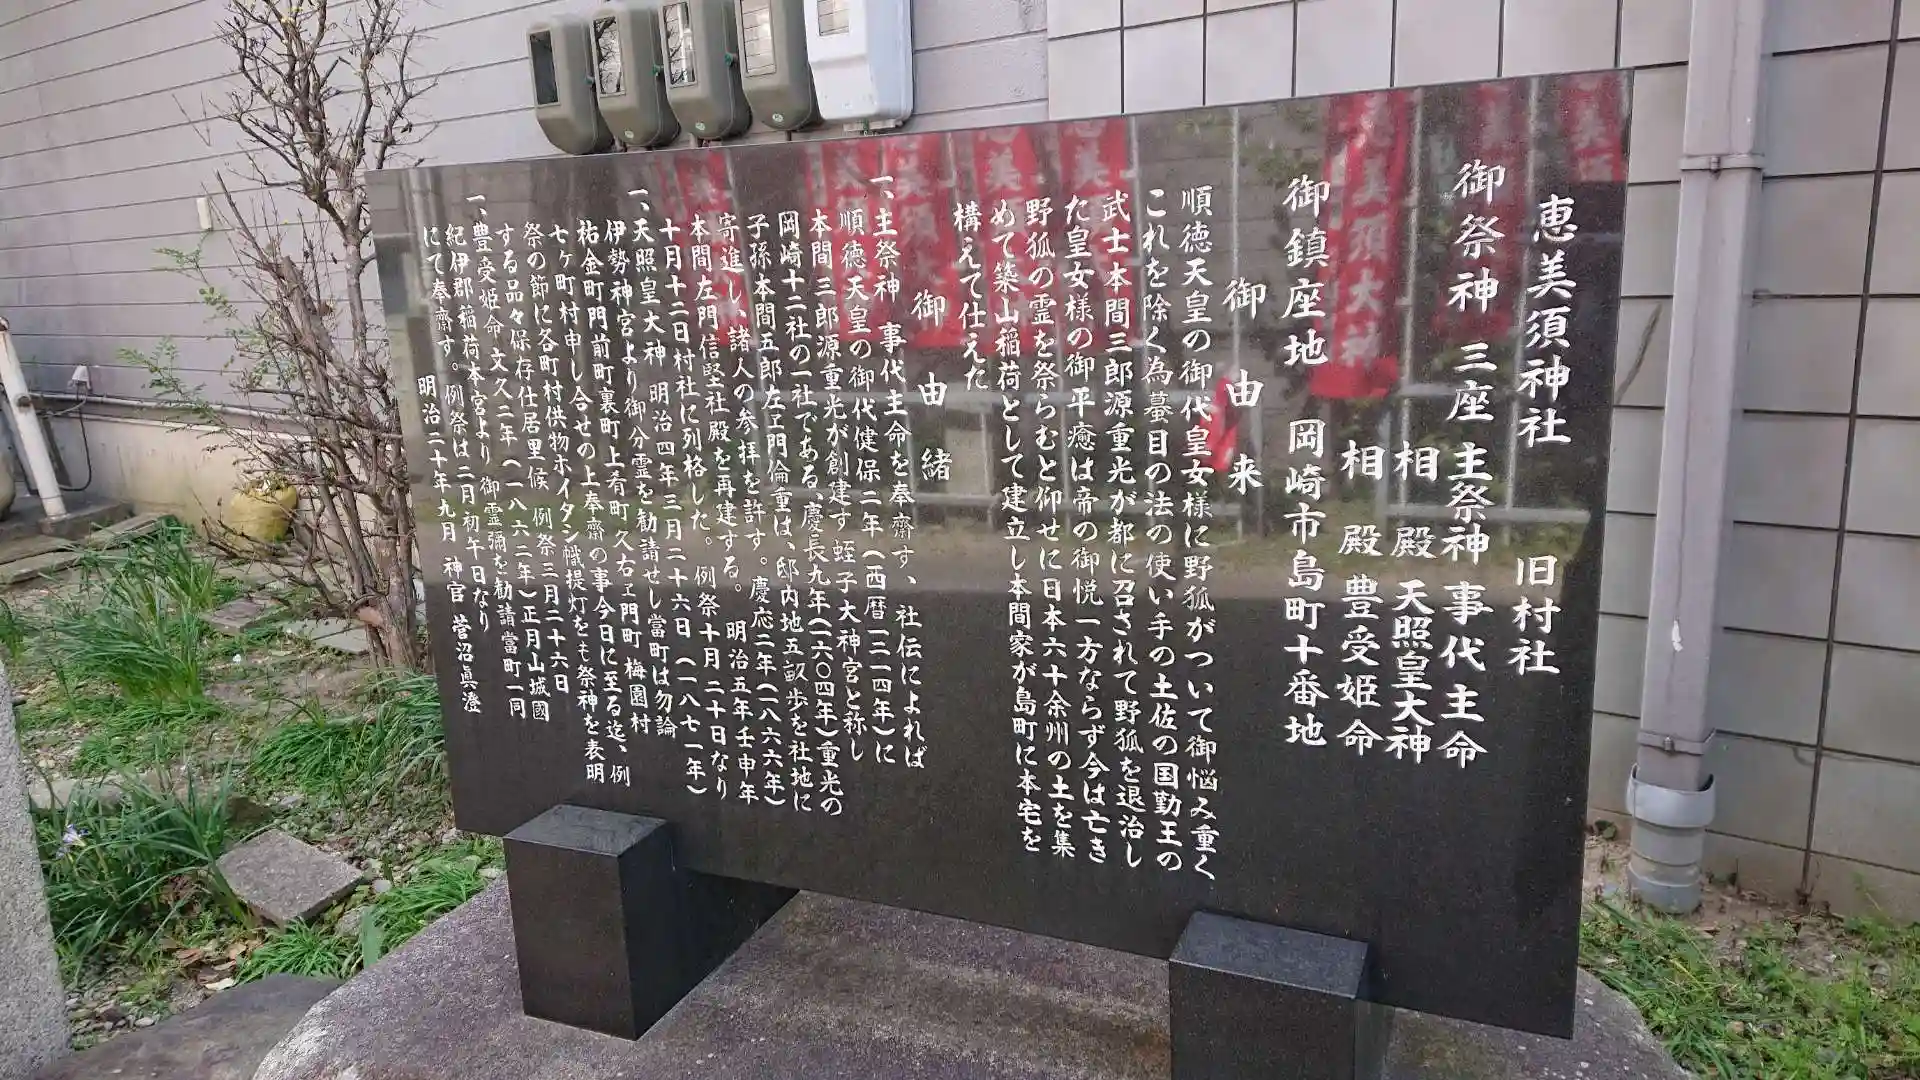 恵美須神社 旧村社
御祭神 三座 主祭神 事代主命
相殿 天照皇大神
相殿 豊受姫命
御鎮座地 岡崎市島町十番地
御由来
順徳天皇の御代皇女様に野狐がついて御悩み重く
これを除く為蟇目の法の使い手の土佐の国勤王の
武士本間三郎源重光が都に召されて野狐を退治し
た皇女様の御平癒は帝の御悦一方ならず今は亡き
野狐の霊を祭らむと仰せに日本六十余州の土を集
めて築山稲荷として建立し本間家が島町に本宅を
構えて仕えた
御由緒
一、主祭神 事代主命を奉齋す、社伝によれば
順徳天皇の御代健保二年(西暦一二一四年)に
本間三郎源重光が創建す蛭子大神宮と称し
岡崎十二社の一社である、慶長九年(一六〇四年)重光の
子孫本間五郎左エ門倫重は、邸内地五畝歩を社地に
寄進し、諸人の参拝を許す。慶応二年(一八六六年)
本間左門信堅社殿を再建する。 明治五年壬申年
十月十二日村社に列格した。 例祭十月二十日なり
一、天照皇大神 明治四年三月二十六日(一八七一年)
伊勢神宮より御分霊を勧請せし當町は勿論
祐金町門前町裏町上肴町久右ヱ門町 梅園村
七ヶ町村申し合せの上奉齋の事今日に至る迄、例
祭の節に各町村供物ホイタン幟提灯をも祭神を表明
する品々保存仕居里候 例祭三月二十六日
一、豊受姫命 文久二年(一八六二年)正月山城國
紀伊郡稲荷本宮より 御霊彌を勧請當町一同
にて奉齋す。例祭は二月初午日なり
明治二十年九月 神官 菅沼眞澄